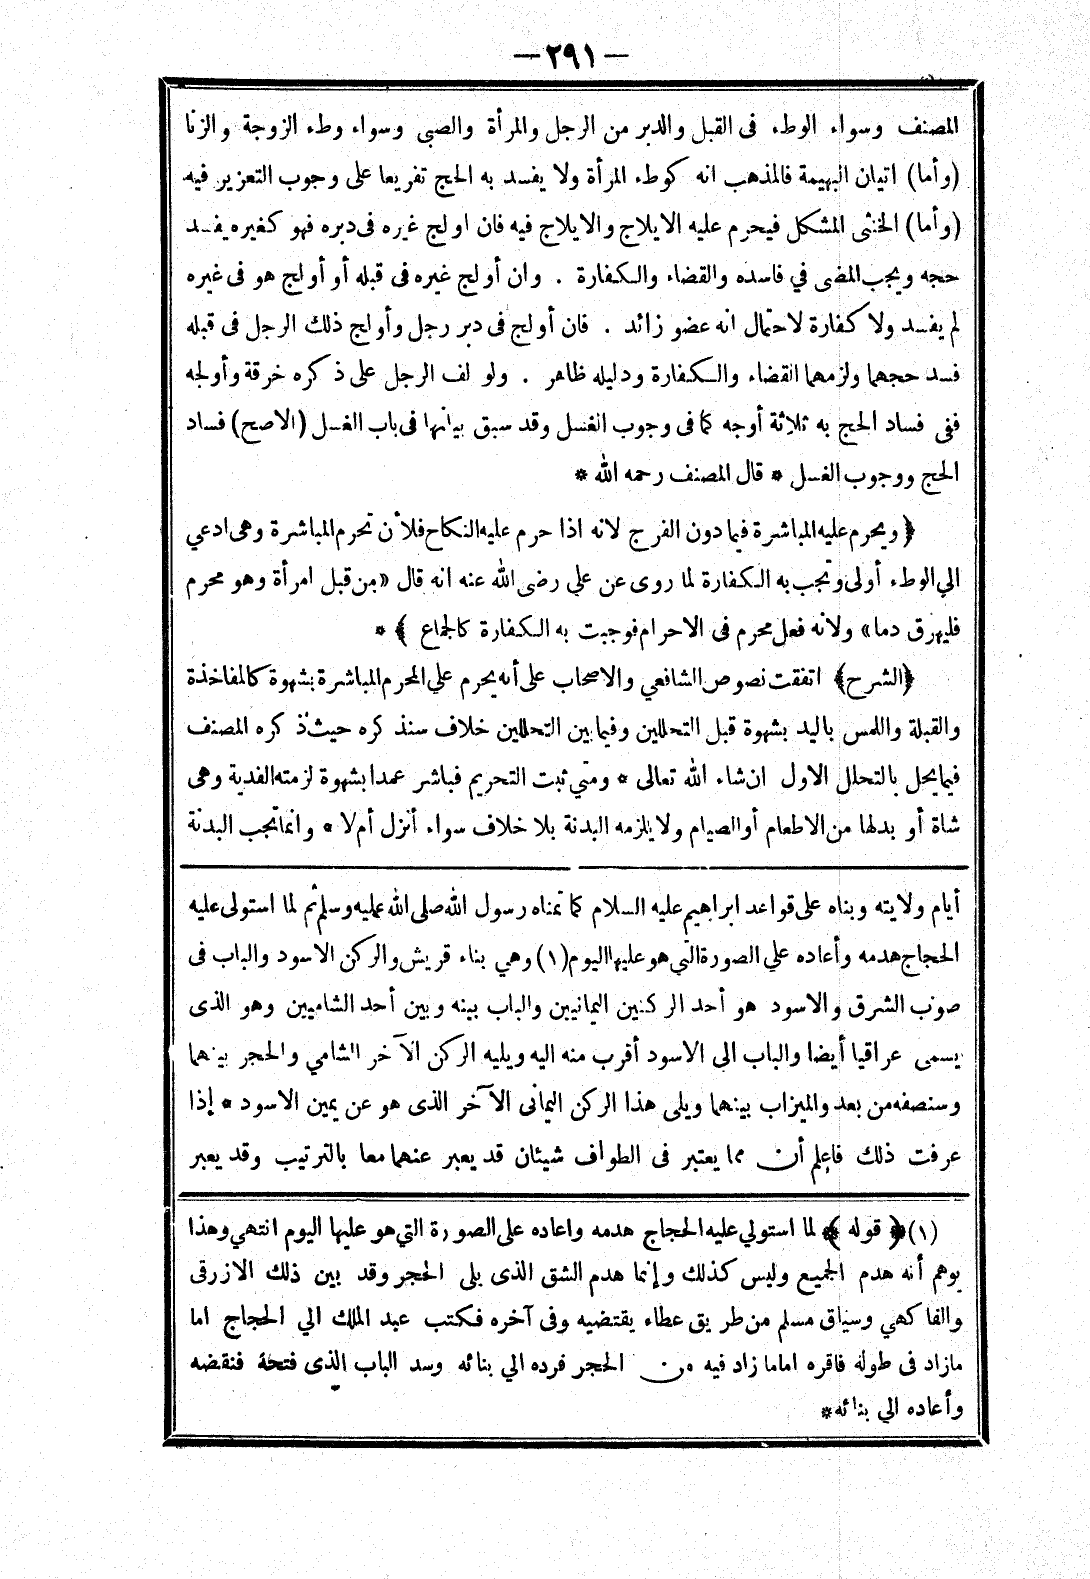 — ٢٩١ —
المصنف وسواء الوطء فى القبل والدبر من الرجل والمرأة والصبى وسواء وطء الزوجة والزنا
(وأما) اتيان البهيمة فالمذهب انه كوطء المرأة ولا يفسد به الحج تفريعا على وجوب التعزير فيه
(وأما) الخنثى المشكل فيحرم عليه الايلاج والايلاج فيه فان اولج غيره فى دبره فهو كغيره يفسد
حجه ويجب المضى في فاسده والقضاء والكفارة . وان أولج غيره فى قبله أو أولج هو فى غيره
لم يفسد ولا كفارة لاحتمال انه عضو زائد . فان أولج فى دبر رجل وأولج ذلك الرجل فى قبله
فسد حجهما ولزمهما القضاء والكفارة ودليله ظاهر . ولو لف الرجل على ذكره خرقة وأولجه
ففى فساد الحج به ثلاثة أوجه كما فى وجوب الغسل وقد سبق بيانها فى باب الغسل (الاصح) فساد
الحج ووجوب الغسل * قال المصنف رحمه الله *
﴿ ويحرم عليه المباشرة فيما دون الفرج لانه اذا حرم عليه النكاح فلأن تحرم المباشرة وهى ادعي
الي الوطء أولى وتجب به الكفارة لما روى عن على رضى الله عنه انه قال «من قبل امرأة وهو محرم
فليهرق دما» ولانه فعل محرم فى الاحرام فوجبت به الكفارة كالجماع ﴾ *
﴿الشرح﴾ اتفقت نصوص الشافعي والاصحاب على أنه يحرم علي المحرم المباشرة بشهوة كالمفاخذة
والقبلة واللمس باليد بشهوة قبل التحللين وفيما بين التحللين خلاف سنذكره حيث ذكره المصنف
فيما يحل بالتحلل الاول ان شاء الله تعالى * ومتي ثبت التحريم فباشر عمدا بشهوة لزمته الفدية وهى
شاة أو بدلها من الاطعام أو الصيام ولا يلزمه البدنة بلا خلاف سواء أنزل أم لا * وانما تجب البدنة
أيام ولايته وبناه على قواعد ابراهيم عليه السلام كما تمناه رسول الله صلى الله عليه وسلم ثم لما استولى عليه
الحجاج هدمه وأعاده علي الصورة التي هو عليها اليوم (١) وهي بناء قريش والركن الاسود والباب فى
صوب الشرق والاسود هو أحد الركنين اليمانيين والباب بينه وبين أحد الشاميين وهو الذى
يسمى عراقيا أيضا والباب الى الاسود أقرب منه اليه ويليه الركن الآخر الشامي والحجر بينهما
وسنصفه من بعد والميزاب بينهما ويلى هذا الركن اليمانى الآخر الذى هو عن يمين الاسود * إذا
عرفت ذلك فاعلم أن مما يعتبر فى الطواف شيئان قد يعبر عنهما معا بالترتيب وقد يعبر
(١) ﴿ قوله ﴾ لما استولي عليه الحجاج هدمه واعاده على الصورة التي هو عليها اليوم انتهي وهذا
يوهم أنه هدم الجميع وليس كذلك وإنما هدم الشق الذى يلى الحجر وقد بين ذلك الازرقى
والفاكهي وسياق مسلم من طريق عطاء يقتضيه وفى آخره فكتب عبد الملك الي الحجاج اما
مازاد فى طوله فاقره اما ما زاد فيه من الحجر فرده الي بنائه وسد الباب الذى فتحه فنقضه
وأعاده الي بنائه *